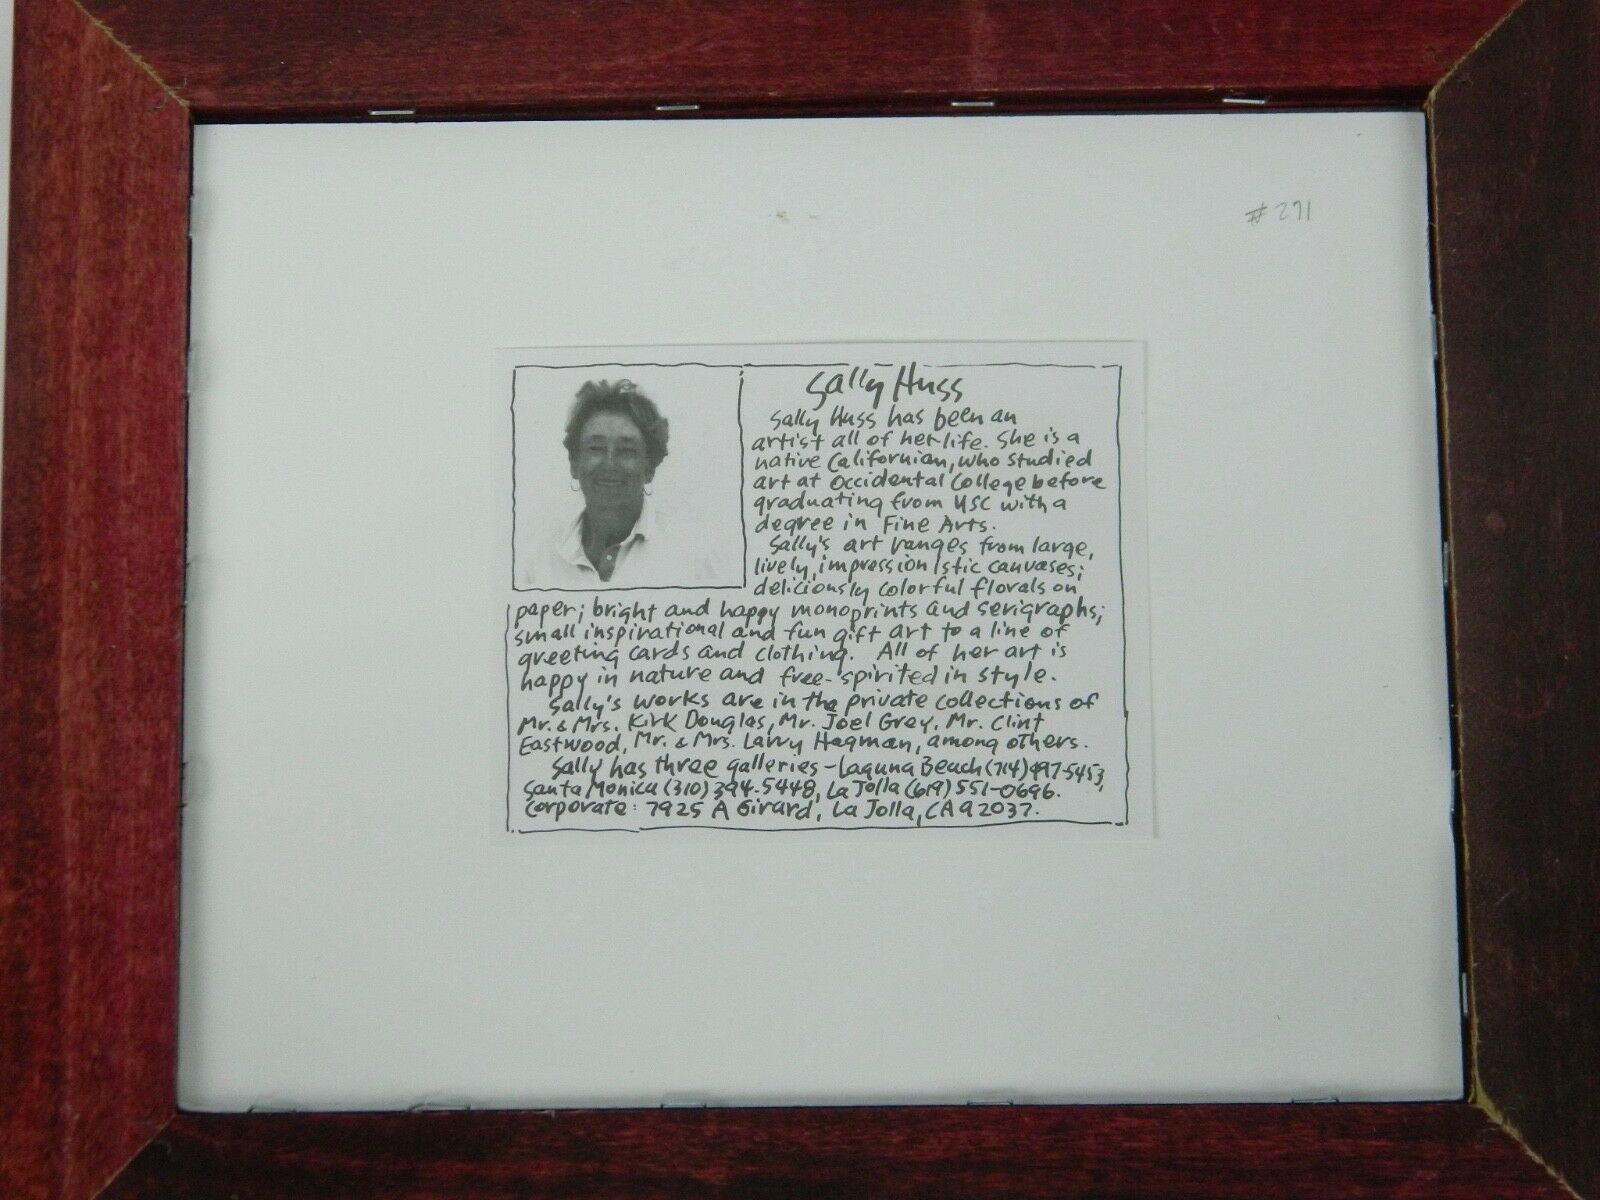 #271
Sally Huss
Sally Huss has been an
artist all of her life. She is a
native Californian, who studied
art at Occidental College before
graduating from USC with a
degree in Fine Arts.
Sally's art ranges from large,
lively, impressionistic canvases;
deliciously colorful florals on
paper; bright and happy monoprints and serigraphs;
small inspirational and fun gift art to a line of
greeting cards and clothing. All of her art is
happy in nature and free-spirited in style.
Sally's works are in the private collections of
Mr. & Mrs. Kirk Douglas, Mr. Joel Grey, Mr. Clint
Eastwood, Mr. & Mrs. Larry Hagman, among others.
Sally has three galleries - Laguna Beach (714) 497-5453,
Santa Monica (310) 394-5448, La Jolla (619) 551-0696.
Corporate: 7925 A Girard, La Jolla, CA 92037.